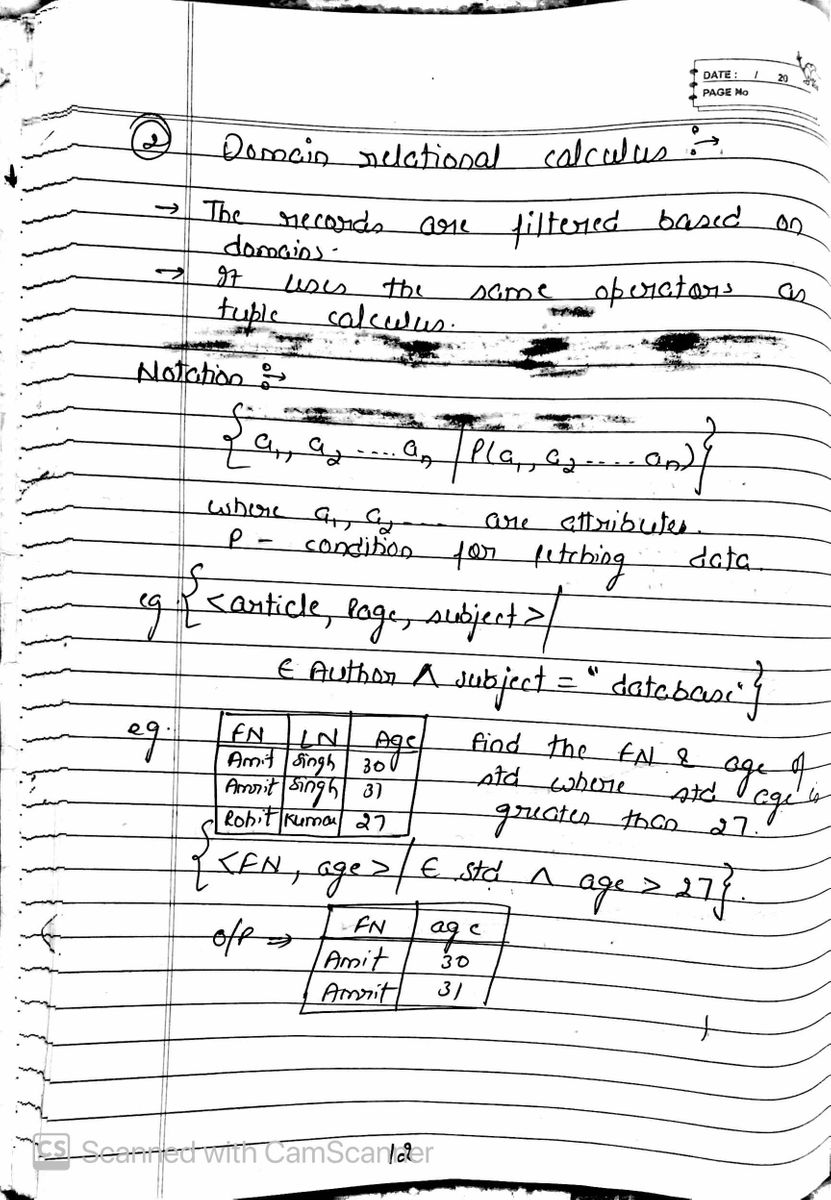 DATE: / 20
PAGE No
② Domain relational calculus :→
→ The records are filtered based on
domains.
→ It uses the same operators as
tuple calculus.
Notation :→
{ a₁, a₂ .... aₙ | P(a₁, a₂ ..... aₙ) }
where a₁, a₂ .... are attributes.
P - condition for fetching data.
eg. { <article, Page, subject> |
∈ Author ∧ subject = "database" }
eg. FN LN Age Find the FN & age of
Amit Singh 30 std where std age is
Amrit Singh 31 greater than 27.
Rohit Kumar 27
{ <FN, age> | ∈ std ∧ age > 27 }.
O/P ⇒ FN age
Amit 30
Amrit 31
12
CS Scanned with CamScanner